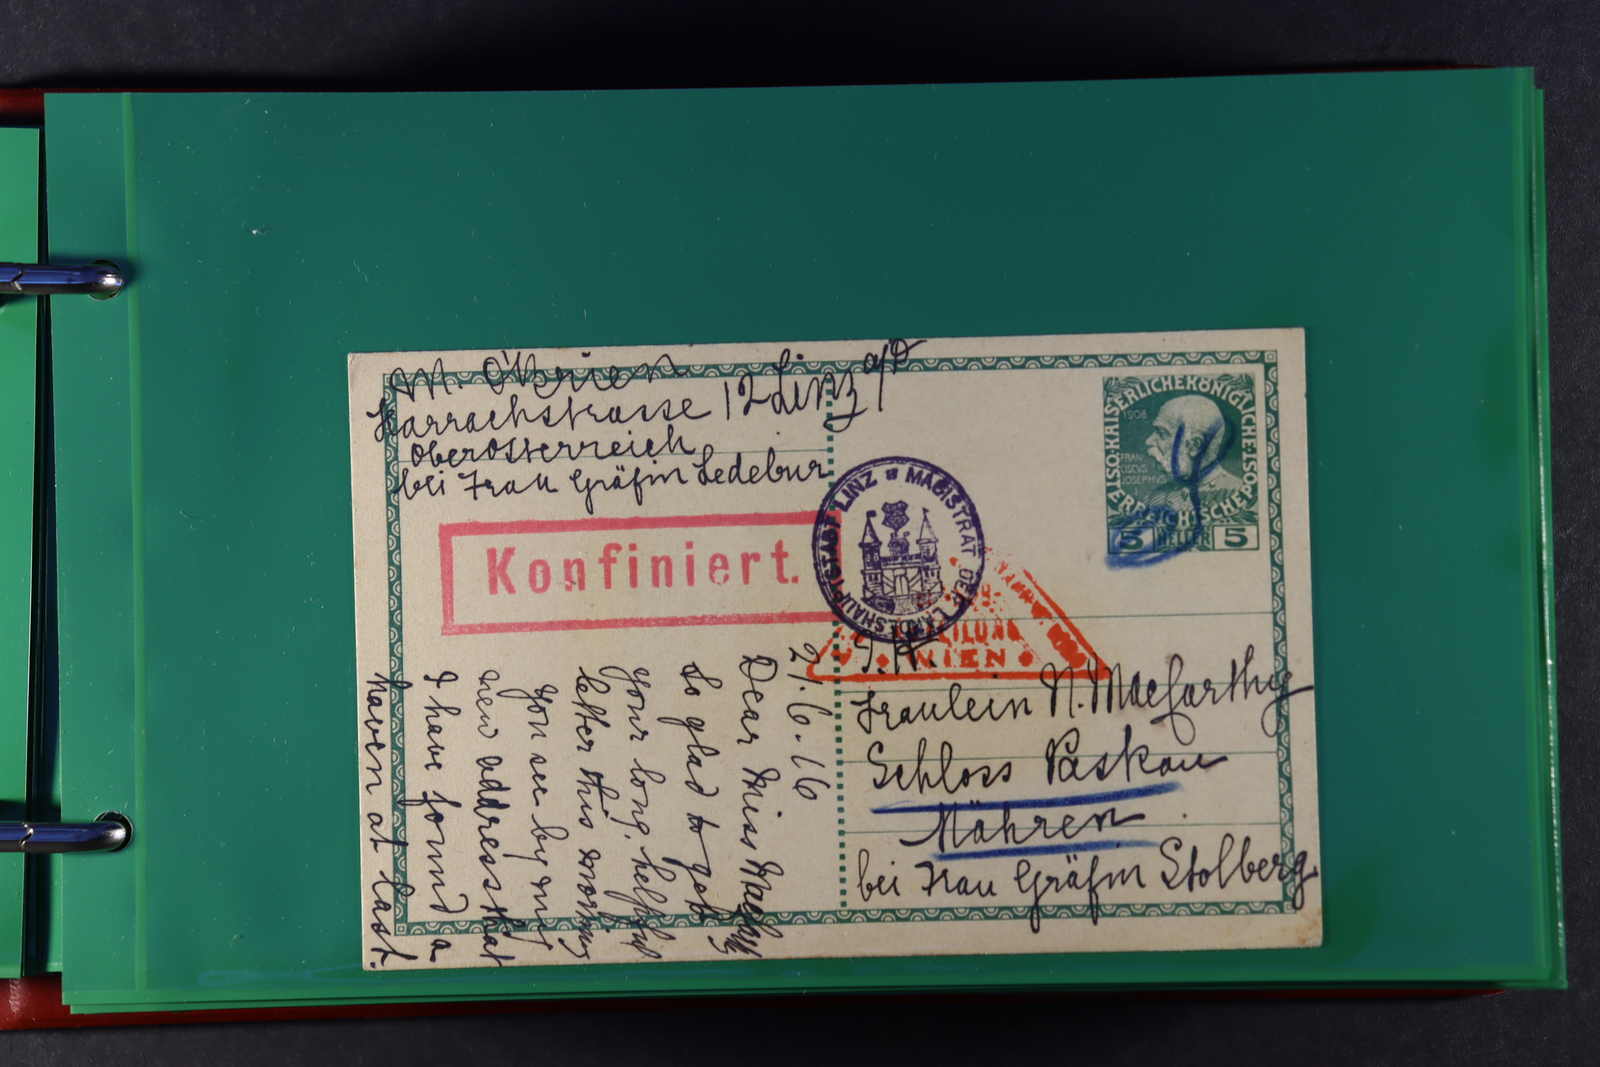 M. O'Brien
Harrachstrasse 12 Linz a/D
Oberösterreich
bei Frau Gräfin Ledebur
Konfiniert.
MAGISTRAT DER LANDESHAUPTSTADT LINZ
WIEN
KAISERLICHEKÖNIGLICHE
ÖSTERREICHISCHE POST
1908
FRAN
CISCVS
JOSEPHVS
5 HELLER 5
Fräulein N. MacCarthy
Schloss Paskau
Mähren
bei Frau Gräfin Stolberg
21.6.16
Dear Miss
So glad to get
your long, helpful
letter this morning
You see by my
new address that
I have found a
haven at last.